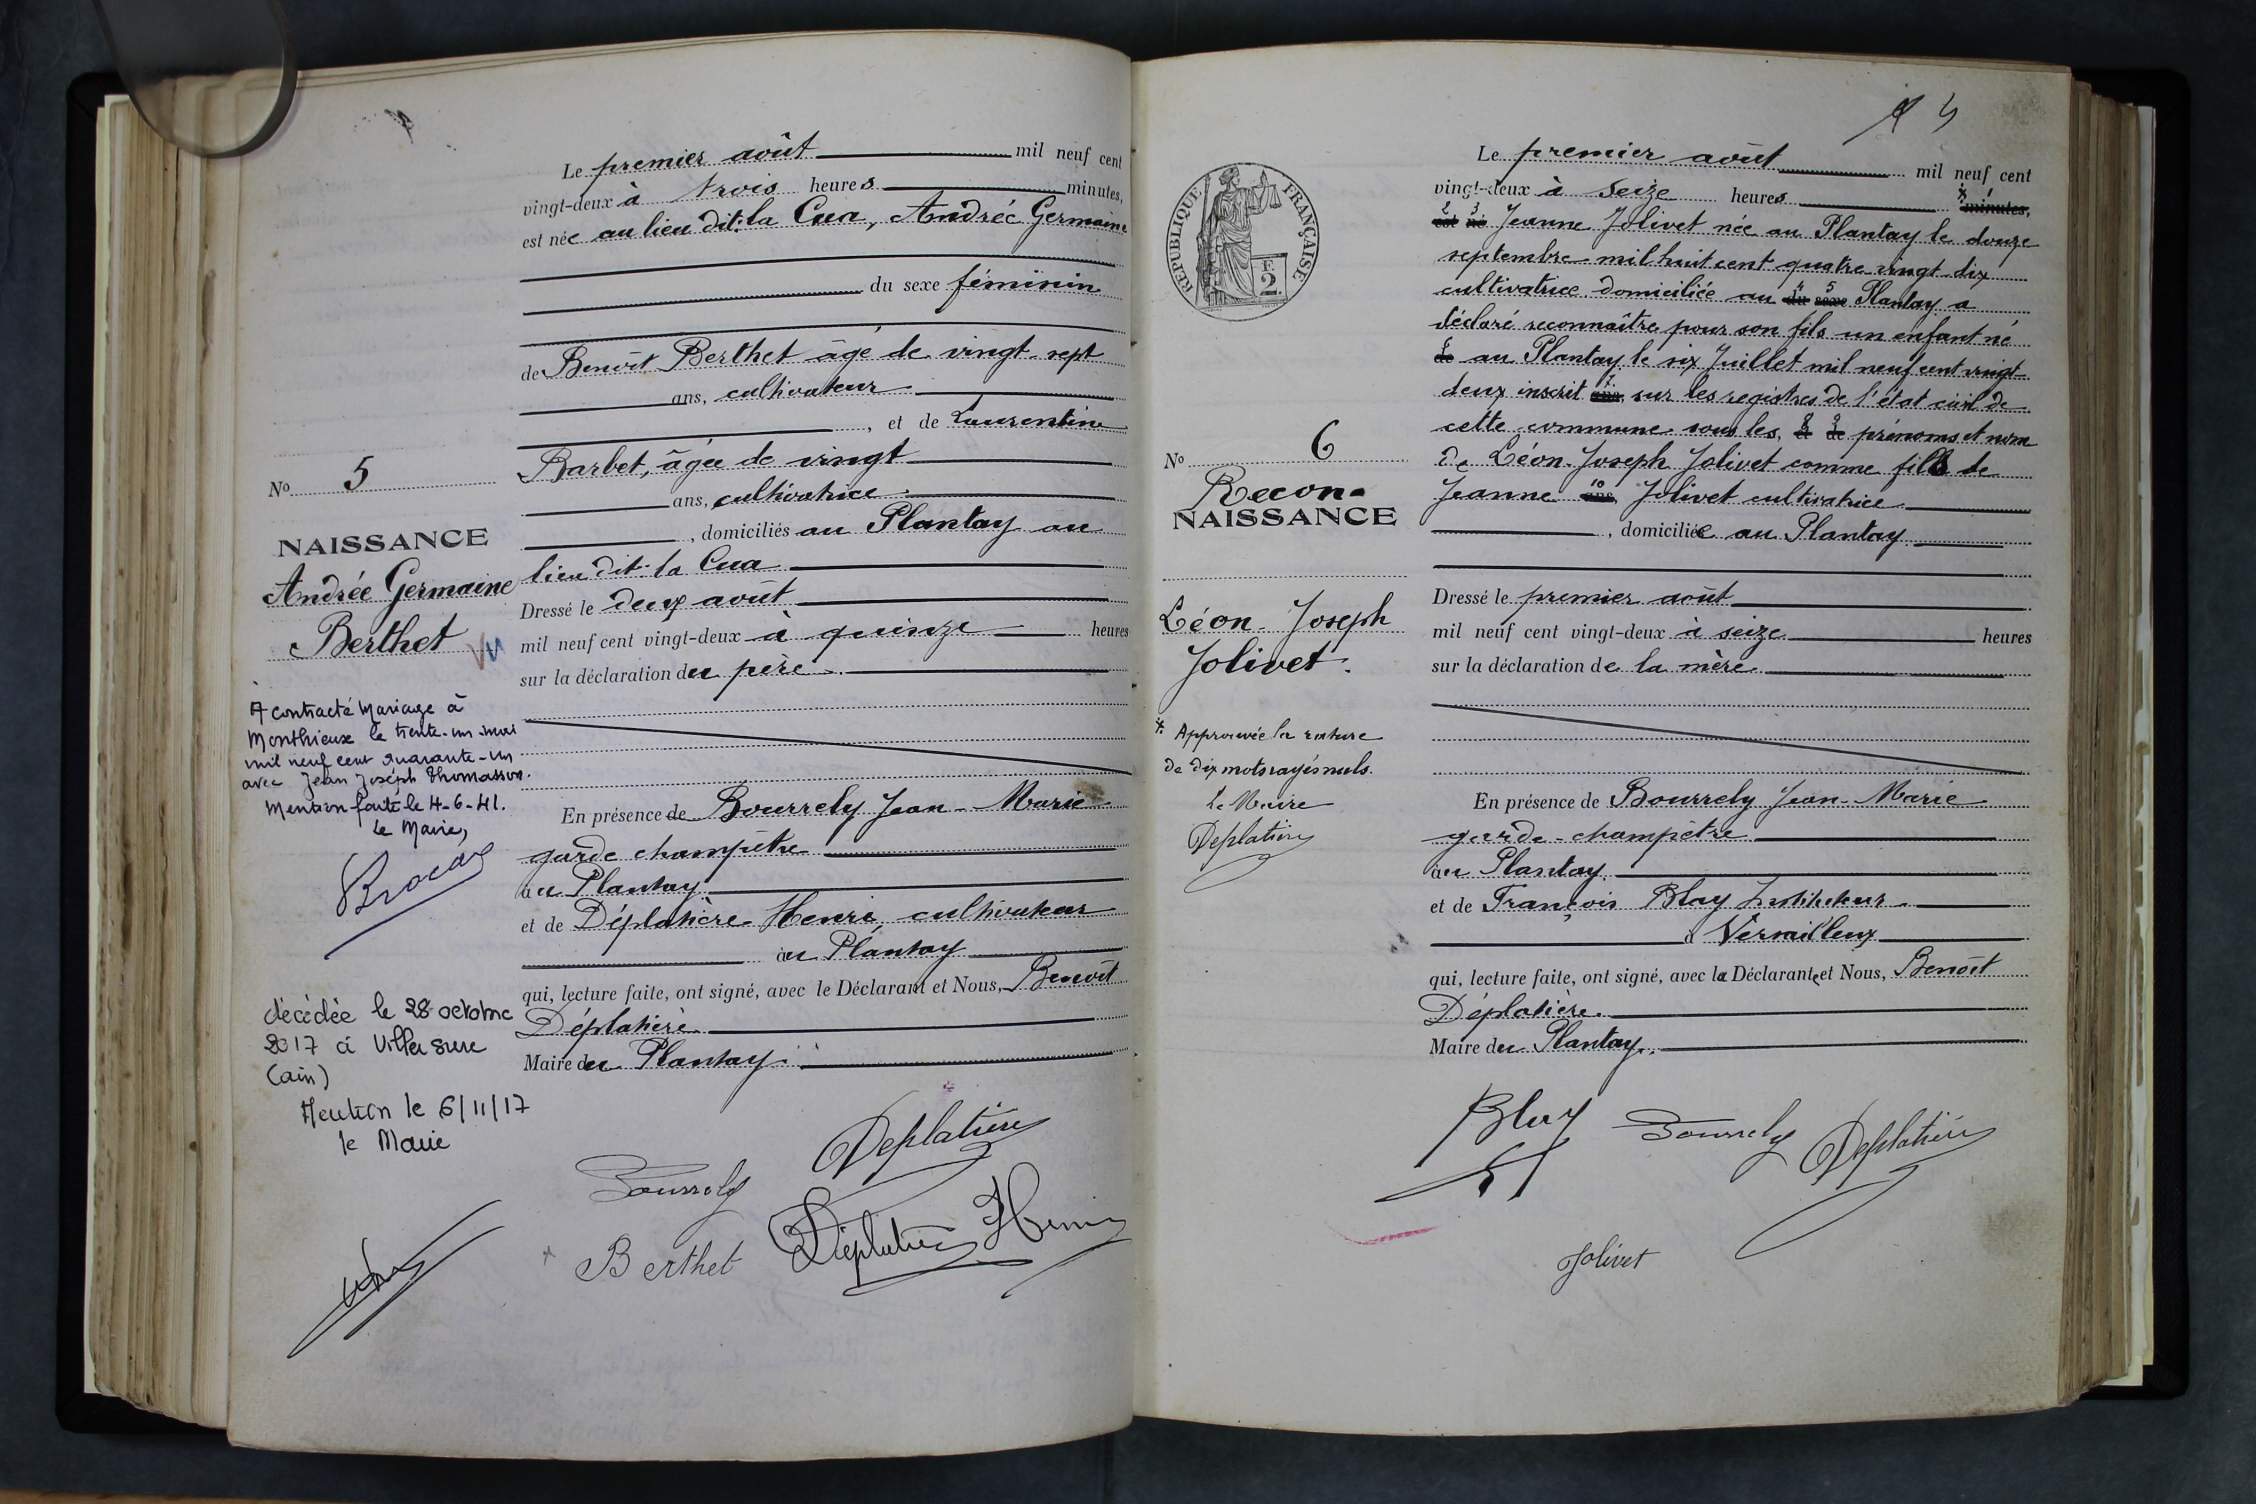 Le premier août mil neuf cent
vingt-deux à trois heures minutes,
est née au lieu dit: la Cua, Andrée Germaine
du sexe féminin
de Benoît Berthet âgé de vingt sept
ans, cultivateur
, et de Laurentine
Barbet, âgée de vingt
ans, cultivatrice
, domiciliés au Plantay au
lieu dit: la Cua
Dressé le deux août
mil neuf cent vingt-deux à quinze heures
sur la déclaration du père.
En présence de Bourrely Jean-Marie
garde champêtre
au Plantay
et de Déplatière Henri, cultivateur
au Plantay
qui, lecture faite, ont signé, avec le Déclarant et Nous, Benoît
Déplatière
Maire du Plantay.
No 5
NAISSANCE
Andrée Germaine
Berthet
Vu
A contracté Mariage à
Monthieux le trente-un mai
mil neuf cent quarante-un
avec Jean Joseph Thomasson.
Mention faite le 4-6-41.
Le Maire,
décédée le 28 octobre
2017 à Villa sure
(ain)
Mention le 6/11/17
le Maire
Deplatière
Bourrely
Berthet
Déplatière Henri
5
REPUBLIQUE FRANÇAISE
F.
2.
Le premier août mil neuf cent
vingt-deux à seize heures x 1 minutes,
2 est 3 né Jeanne Jolivet née au Plantay le douze
septembre mil huit cent quatre vingt dix
cultivatrice domiciliée au 4 du 5 sexe Plantay a
déclaré reconnaître pour son fils un enfant né
6 de au Plantay le six Juillet mil neuf cent vingt
deux inscrit 7 ans, sur les registres de l'état civil de
cette commune sous les, 8 et 9 de prénoms et nom
de Léon-Joseph Jolivet comme fils de
Jeanne 10 ans, Jolivet cultivatrice
, domiciliée au Plantay
Dressé le premier août
mil neuf cent vingt-deux à seize heures
sur la déclaration de la mère
En présence de Bourrely Jean-Marie
garde-champêtre
au Plantay.
et de François Blay Instituteur
à Versailleux
qui, lecture faite, ont signé, avec la Déclarante et Nous, Benoît
Déplatière.
Maire du Plantay.
No 6
Recon-
NAISSANCE
Léon-Joseph
Jolivet.
x Approuvée la rature
de dix mots rayés nuls.
Le Maire
Deplatière
Blay
Bourrely
Deplatière
Jolivet